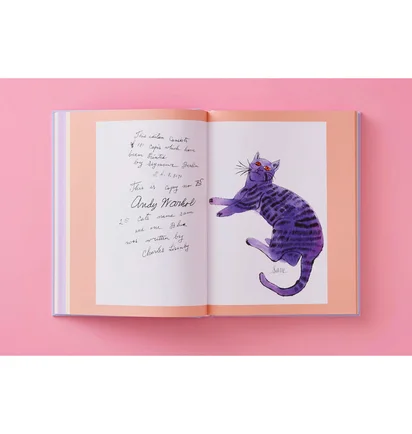 This edition consists
of 190 copies which have
been Printed
by Seymour Berlin
This is copy no 85
Andy Warhol
25 Cats name Sam
and one Blue
was written by
Charles Lisanby
Sam